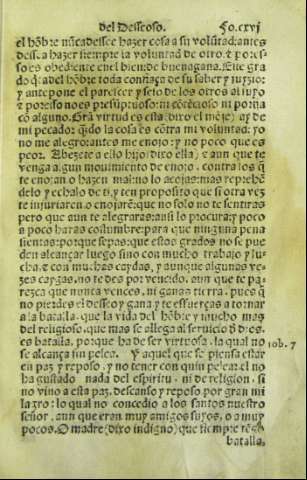 del Desseoso. Fo.cxvj
el hõbre nũca dessee hazer cosa a su volũtad: antes
dessea hazer siempre la volũtad de otro: τ por es-
so es obediente en el bien de buena gana. Este gra
do q̃ta del hõbre toda confiãça de su saber y juyzio:
y antepone el parescer y seso de los otros al suyo
τ por esso no es presũptuoso: ni cõtecioso ni porfia
cõ alguno. Grã virtud es esta (dixo el mõje) ay de
mi pecador q̃ quãdo la cosa es cõtra mi voluntad: yo
no me alegro: antes me enojo: y no poco que es
peor. Abezate a ello hijo (dixo ella) τ aun que te
venga algun mouimiento de enojo, contra los q̃
te enojan o hazen mal: no lo acojas: mas repebẽ
delo y echalo de ti, y ten proposito que si otra vez
te injuriaren o enojarẽ: que no solo no te sentiras
pero que aun te alegraras: assi lo procura: y poco
a poco haras costumbre: para que ninguna pena
sientas: porque sepas: que estos grados no se pue
den alcançar luego sino con mucho trabajo y lu-
cha, τ con muchas caydas, y aunque algunas ve-
zes caygas, no te des por vencido, aun que te pa-
rezca que nunca vences, ni ganas tierra, pues q̃
no pierdes el desseo y gana τ te esfuerças a tornar
a la batalla, que la vida del hõbre y mucho mas
del religioso, que mas se allega al seruicio d̃ dios,
es batalla, porque ha de ser virtuosa, la qual no
se alcança sin pelea. Y aquel que se piensa estar
en paz y reposo, y no tener con quin pelear: el no
ha gustado nada del espiritu, ni de religion, si
no vino a esta paz, descanso y reposo por gran mi
lagro: lo qual no concedio a los santos nuestro
señor, aun que eran muy amigos suyos, o a muy
pocos. O madre (dixo indigno) que siempre
batalla.
iob. 7